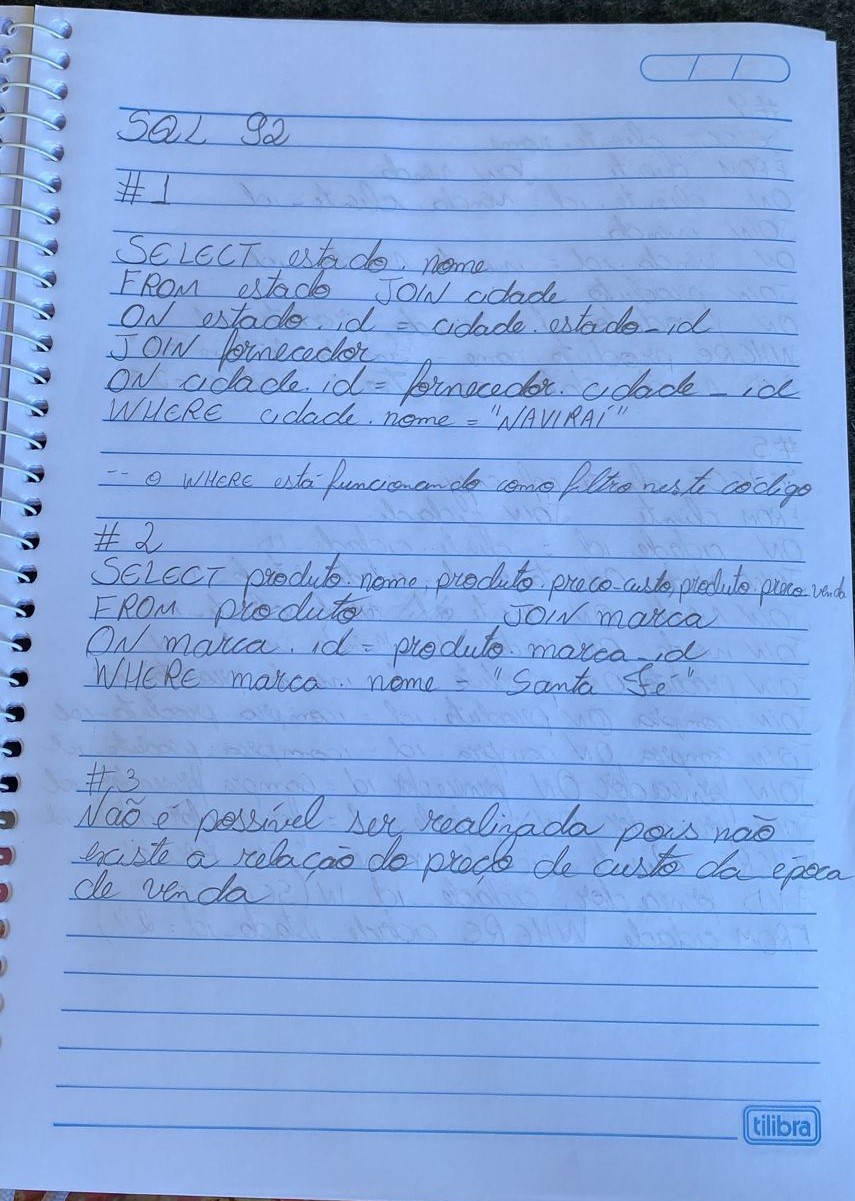 SQL 92
#1
SELECT estado.nome
FROM estado JOIN cidade
ON estado.id = cidade.estado_id
JOIN fornecedor
ON cidade.id = fornecedor.cidade_id
WHERE cidade.nome = "NAVIRAÍ"
-- o WHERE está funcionando como filtro neste código
#2
SELECT produto.nome, produto.preco_custo, produto.preco_venda
FROM produto JOIN marca
ON marca.id = produto.marca_id
WHERE marca.nome = "Santa Fé"
#3
Não é possível ser realizada pois não
existe a relação do preço de custo da época
de venda
tilibra